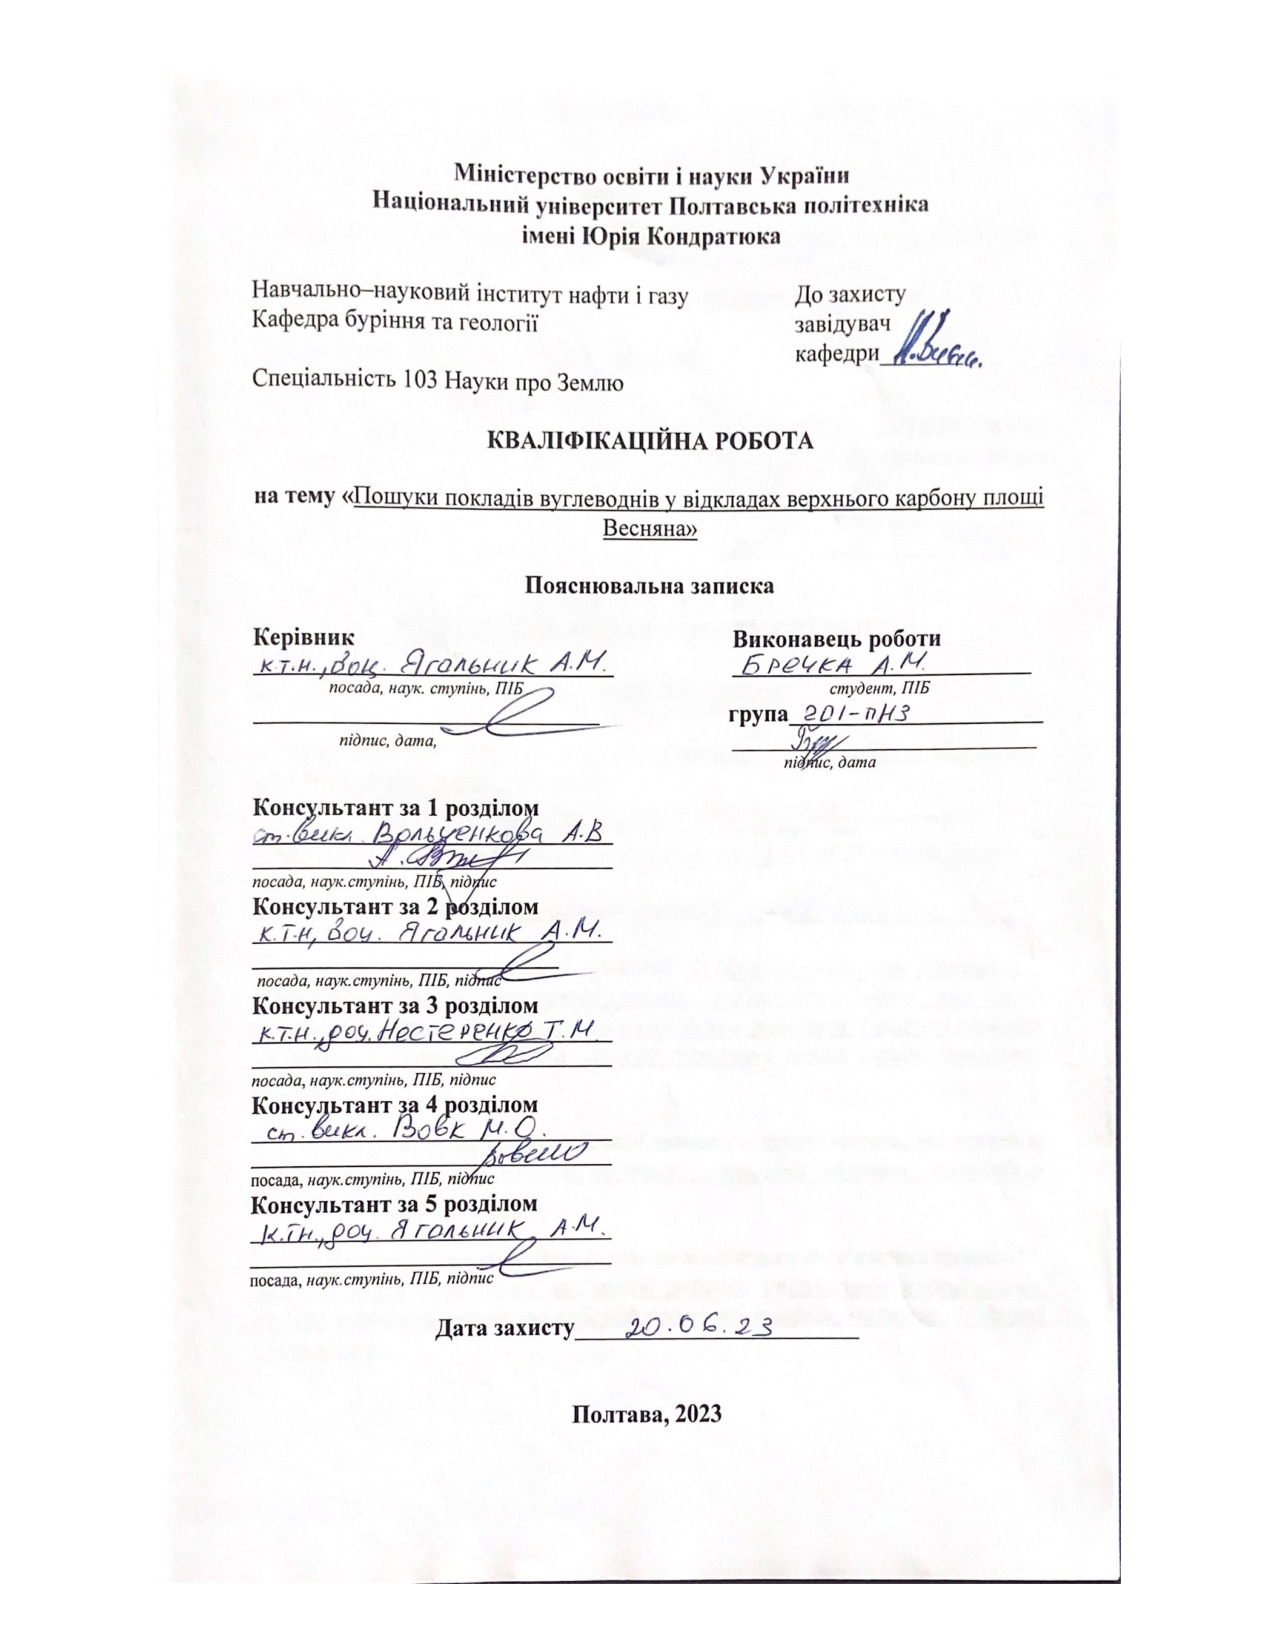 Міністерство освіти і науки України
Національний університет Полтавська політехніка
імені Юрія Кондратюка
Навчально–науковий інститут нафти і газу
Кафедра буріння та геології
До захисту
завідувач
кафедри
Спеціальність 103 Науки про Землю
КВАЛІФІКАЦІЙНА РОБОТА
на тему «Пошуки покладів вуглеводнів у відкладах верхнього карбону площі
Весняна»
Пояснювальна записка
Керівник
к.т.н., доц. Ягольник А.М.
посада, наук. ступінь, ПІБ
підпис, дата,
Виконавець роботи
Бречка А.М.
студент, ПІБ
група 201-пНЗ
підпис, дата
Консультант за 1 розділом
ст. викл. Вольченкова А.В
посада, наук.ступінь, ПІБ, підпис
Консультант за 2 розділом
к.т.н, доц. Ягольник А.М.
посада, наук.ступінь, ПІБ, підпис
Консультант за 3 розділом
к.т.н., доц. Нестеренко Т.М.
посада, наук.ступінь, ПІБ, підпис
Консультант за 4 розділом
ст. викл. Вовк М.О.
посада, наук.ступінь, ПІБ, підпис
Консультант за 5 розділом
к.т.н., доц. Ягольник А.М.
посада, наук.ступінь, ПІБ, підпис
Дата захисту 20.06.23
Полтава, 2023